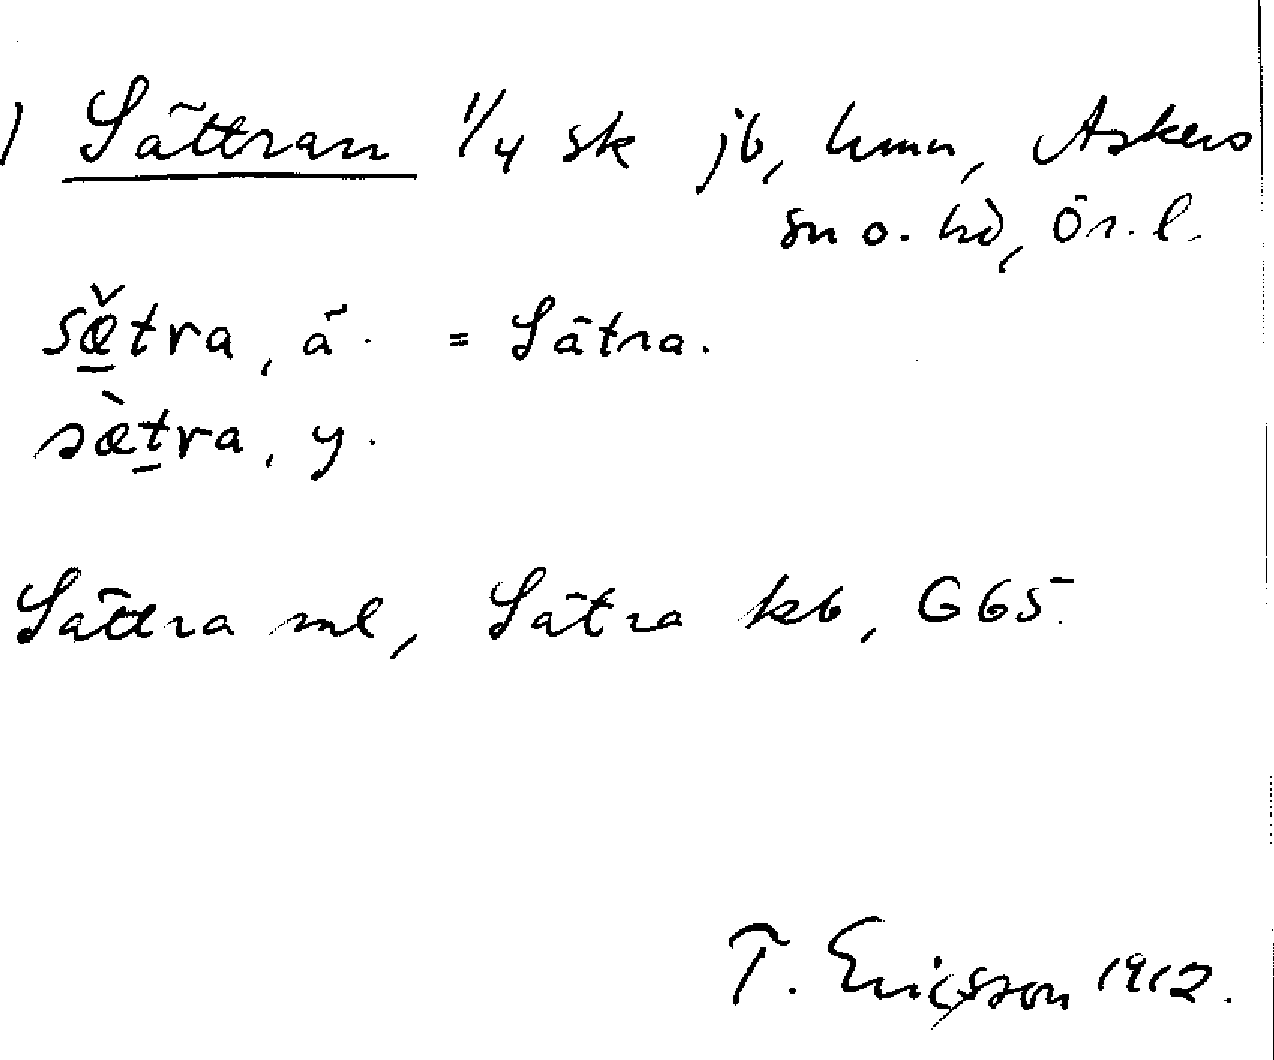 ) Sättran 1/4 sk jb, hmn, Askers
sn o. hd, Ör. l.
sæ̠̌tra, ä. = Sätra.
sæ̀t̠ra, y.
Sättra ml, Sätra kb, G65.
T. Ericsson 1912.